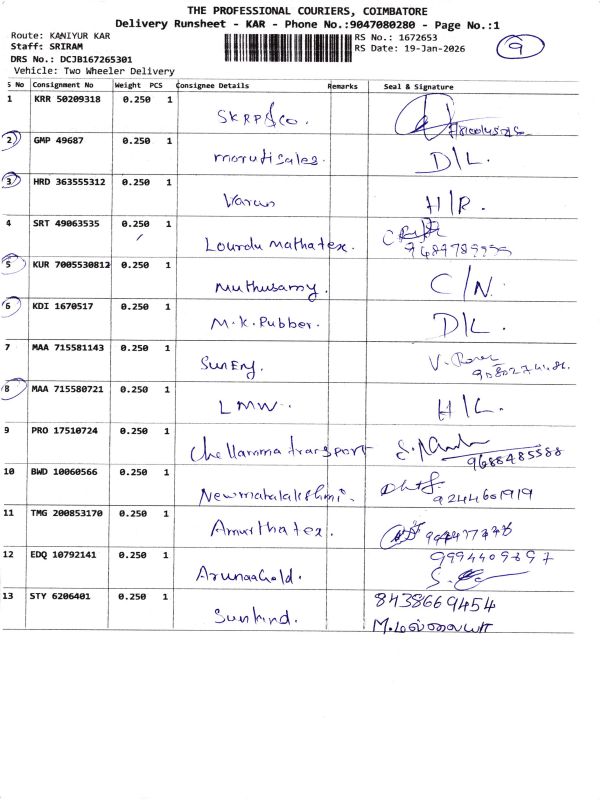 THE PROFESSIONAL COURIERS, COIMBATORE
Delivery Runsheet - KAR - Phone No.:9047080280 - Page No.:1
Route: KANIYUR KAR
RS No.: 1672653
9
Staff: SRIRAM
RS Date: 19-Jan-2026
DRS No.: DCJB167265301
Vehicle: Two Wheeler Delivery
S No Consignment No Weight PCS Consignee Details Remarks Seal & Signature
1 KRR 50209318 0.250 1 SKRP&Co.
2 GMP 49687 0.250 1 marutisales. D/L.
3 HRD 363555312 0.250 1 Varun H/R.
4 SRT 49063535 0.250 1 Lourdu mathatex.
5 KUR 7005530812 0.250 1 Muthusamy. C/N.
6 KDI 1670517 0.250 1 M.K.Rubber. D/L.
7 MAA 715581143 0.250 1 SunEry.
8 MAA 715580721 0.250 1 LMW. H/L.
9 PRO 17510724 0.250 1 Chellamma transport 9688485588
10 BWD 10060566 0.250 1 Newmahalakshmi. 9244601919
11 TMG 200853170 0.250 1 Amirthatex.
12 EDQ 10792141 0.250 1 Arunaa Gold. 9994409897
13 STY 6206401 0.250 1 Sunkind. 8438669454